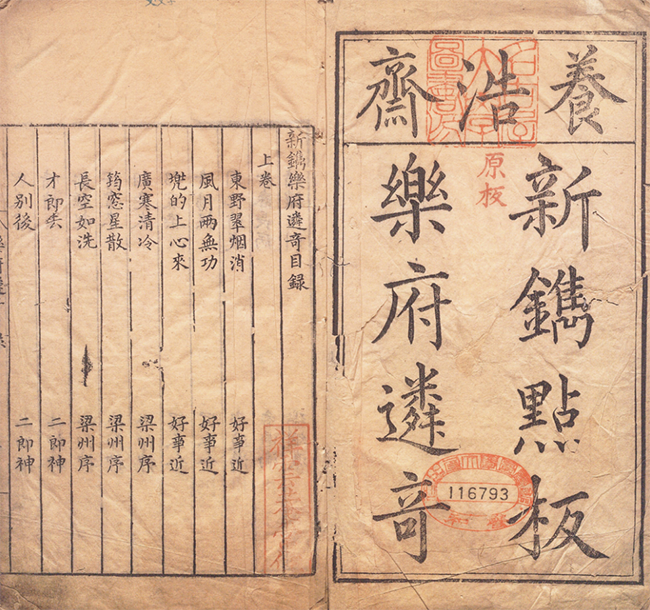 養浩齋
原板
新鐫點板
樂府遴奇
116793
新鐫樂府遴奇目錄
上卷
東野翠烟消 好事近
風月兩無功 好事近
兠的上心來 好事近
廣寒清冷 梁州序
綺窓星散 梁州序
長空如洗 梁州序
才郎去 二郎神
人別後 二郎神